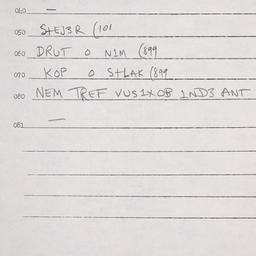 040 —
050 StEJ3R (101
060 DRUT O NIM (899
070 KOP O StLAK (899
080 NEM TREF VUS1XOB 1ND3 ANT
081 —